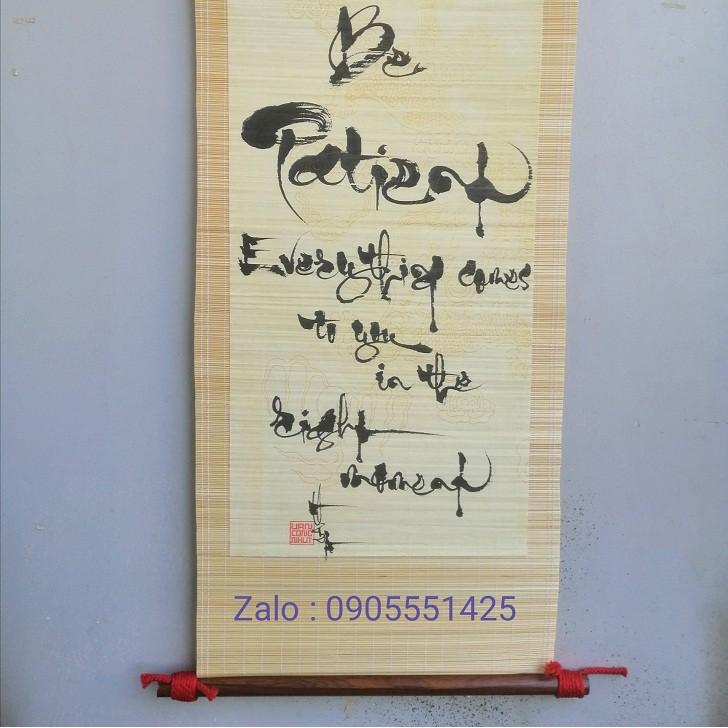 Be
Patient
Everything comes
to you
in the
right
moment
VAN
CONG
NHUT
Zalo : 0905551425